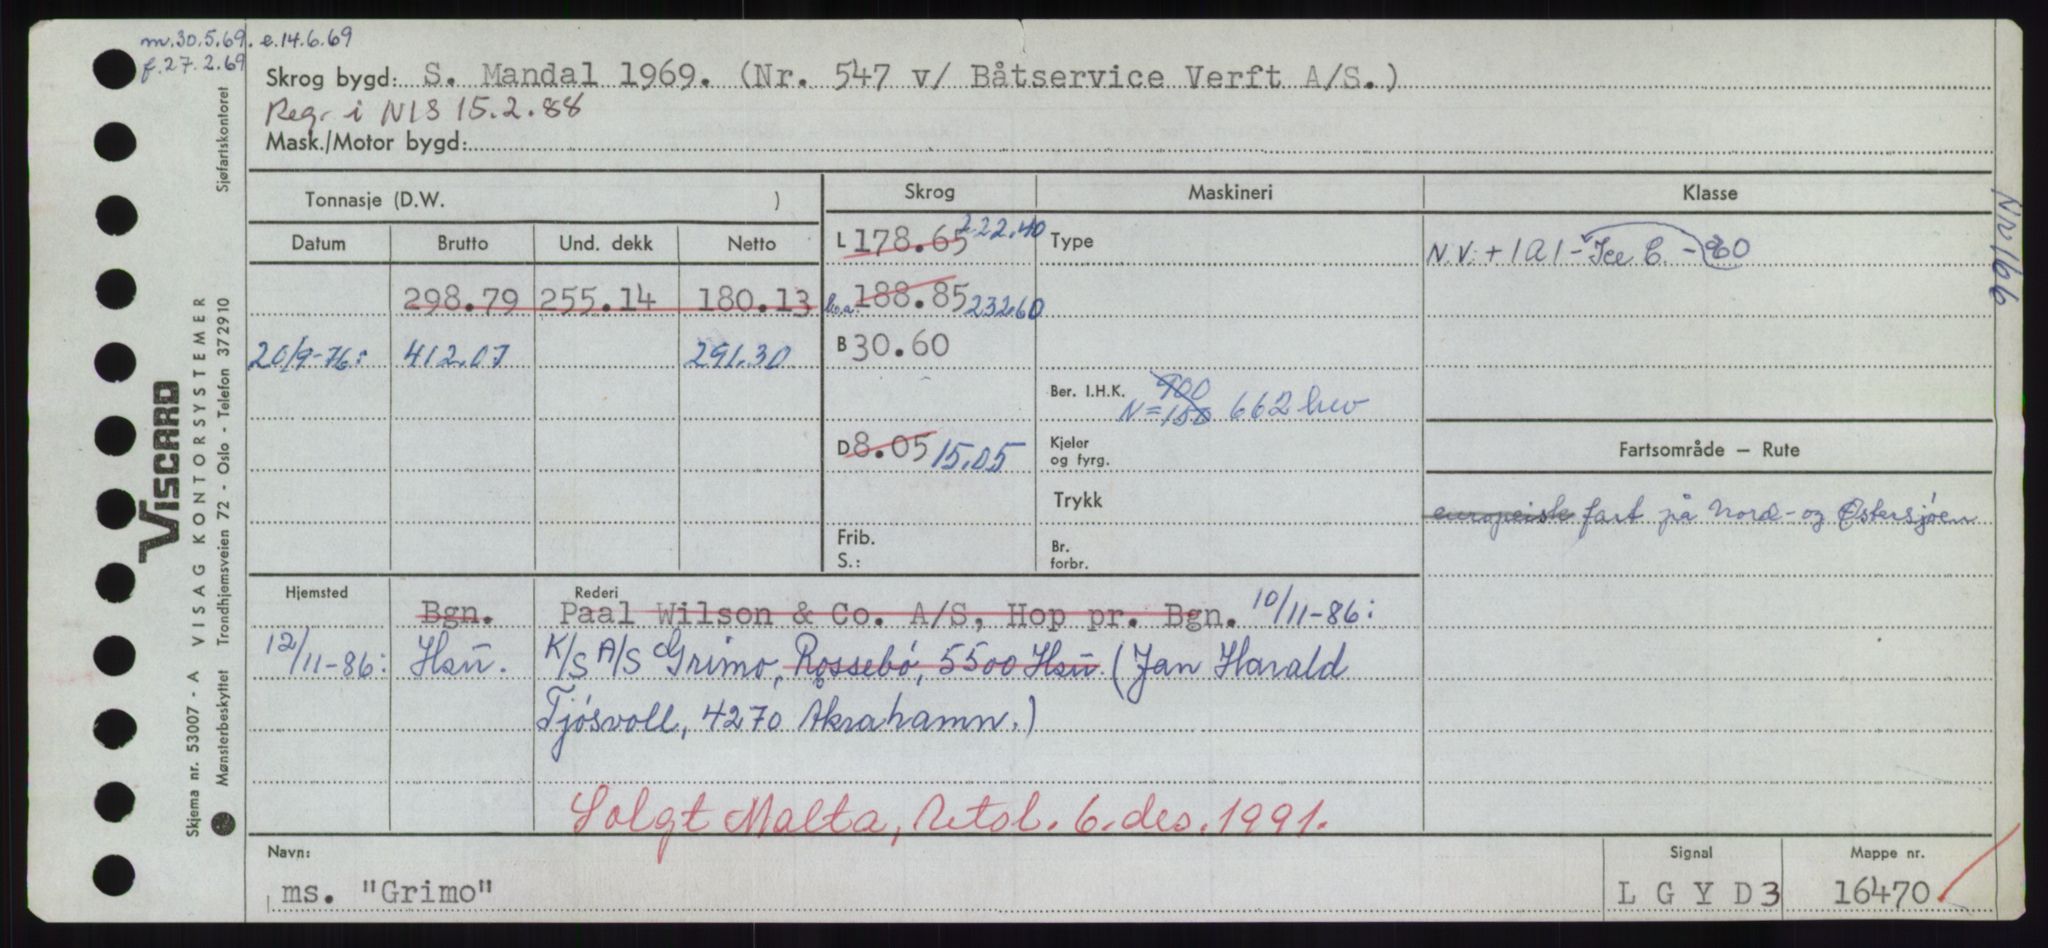 m.30.5.69. e.14.6.69
f.27.2.69
Skrog bygd: S. Mandal 1969. (Nr. 547 v/ Båtservice Verft A/S.)
Reg. i NIS 15.2.88
Mask./Motor bygd:
Tonnasje (D.W. )
Skrog Maskineri Klasse
Datum Brutto Und. dekk Netto
L 178.65 222.40 Type
N.V. + 1A1 - Ice C. - 60
298.79 255.14 180.13
l.o.a. 188.85 232.60
B 30.60
20/9-76: 412.07 291.30
Ber. I.H.K. 900
N=150 662 hew
D 8.05 15.05
Kjeler
og fyrg.
Fartsområde – Rute
Trykk
europeisk fart på Nord- og Østersjøen
Frib.
S.:
Br.
forbr.
Hjemsted Rederi
Bgn. Paal Wilson & Co. A/S, Hop pr. Bgn. 10/11-86:
12/11-86: Hsu. K/S A/S Grimo, Røssebø, 5500 Hsu. (Jan Harald
Tjøsvoll, 4270 Akrahamn.)
Solgt Malta, Utsl. 6. des. 1991.
Navn: Signal Mappe nr.
ms. "Grimo" LGYD3 16470
Sjøfartskontoret
VISCARD
VISAG KONTORSYSTEMER
Skjema nr. 53007 - A
Mønsterbeskyttet Trondhjemsveien 72 - Oslo - Telefon 372910